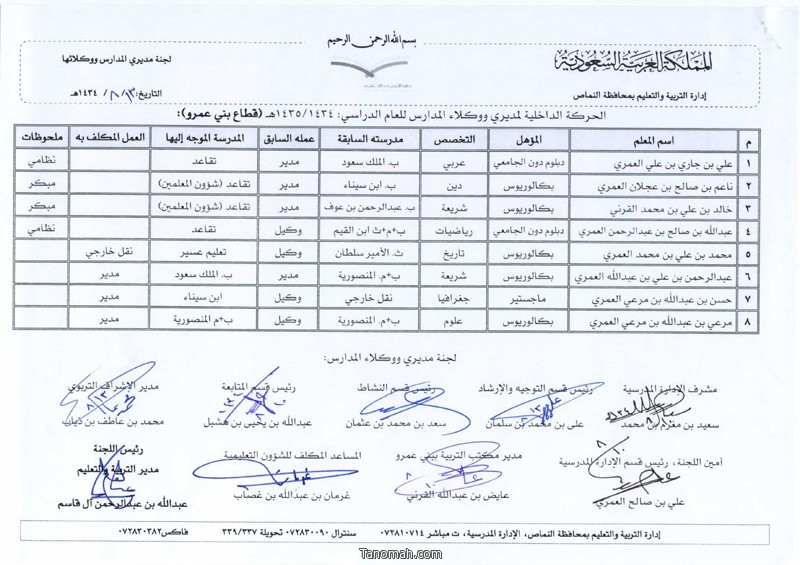 بسم الله الرحمن الرحيم
المملكة العربية السعودية
لجنة مديري المدارس ووكلائها
إدارة التربية والتعليم بمحافظة النماص
التاريخ: ١٣ / ٨ / ١٤٣٤هـ
الحركة الداخلية لمديري ووكلاء المدارس للعام الدراسي: ١٤٣٥/١٤٣٤هـ (قطاع بني عمرو):
م اسم المعلم المؤهل التخصص مدرسته السابقة عمله السابق المدرسة الموجه إليها العمل المكلف به ملحوظات
١ علي بن جاري بن علي العمري دبلوم دون الجامعي عربي ب. الملك سعود مدير تقاعد نظامي
٢ ناعم بن صالح بن عجلان العمري بكالوريوس دين ب. ابن سيناء مدير تقاعد (شؤون المعلمين) مبكر
٣ خالد بن علي بن محمد القرني بكالوريوس شريعة ب. عبدالرحمن بن عوف مدير تقاعد (شؤون المعلمين) مبكر
٤ عبدالله بن صالح بن عبدالرحمن العمري دبلوم دون الجامعي رياضيات ب+م+ث ابن القيم وكيل تقاعد نظامي
٥ محمد بن علي بن محمد العمري بكالوريوس تاريخ ث. الأمير سلطان وكيل تعليم عسير نقل خارجي
٦ عبدالرحمن بن علي بن عبدالله العمري بكالوريوس شريعة ب+م. المنصورية مدير ب. الملك سعود مدير
٧ حسن بن عبدالله بن مرعي العمري ماجستير جغرافيا نقل خارجي وكيل ابن سيناء مدير
٨ مرعي بن عبدالله بن مرعي العمري بكالوريوس علوم ب+م. المنصورية وكيل ب+م المنصورية مدير
لجنة مديري ووكلاء المدارس:
مشرف الإدارة المدرسية رئيس قسم التوجيه والإرشاد رئيس قسم النشاط رئيس قسم المتابعة مدير الإشراف التربوي
سعيد بن مغرم بن محمد علي بن محمد بن سلمان سعد بن محمد بن عثمان عبدالله بن يحيى بن هشبل محمد بن عاطف بن ذياب
أمين اللجنة، رئيس قسم الإدارة المدرسية مدير مكتب التربية ببني عمرو المساعد المكلف للشؤون التعليمية رئيس اللجنة
مدير التربية والتعليم
علي بن صالح العمري عايض بن عبدالله القرني غرمان بن عبدالله بن غصاب عبدالله بن عبدالرحمن آل قاسم
إدارة التربية والتعليم بمحافظة النماص، الإدارة المدرسية، ت مباشر ٠٧٢٨١٠٧١٤ سنترال ٠٧٢٨٣٠٠٩٠ تحويلة ٣٣٩/٣٣٧ فاكس٠٧٢٨٣٠٣٨٢
Tanomah.com